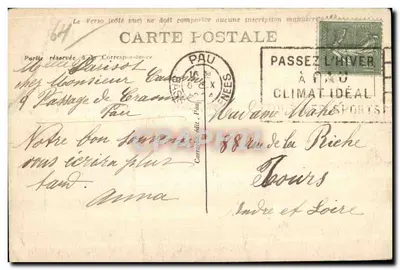 64
Le Verso (côté vue) ne doit comporter aucune inscription manuscrite
CARTE POSTALE
Partie réservée à la Correspondance
PAU
BASSES PYRENEES
PASSEZ L'HIVER
À PAU
CLIMAT IDÉAL
SPORTS
Melle
chez Monsieur
9 Passage de
Pau
Notre bon souvenir
vous écrirai plus
tard
Anna
Madame Mahé
88 rue de la Riche
Tours
Indre et Loire